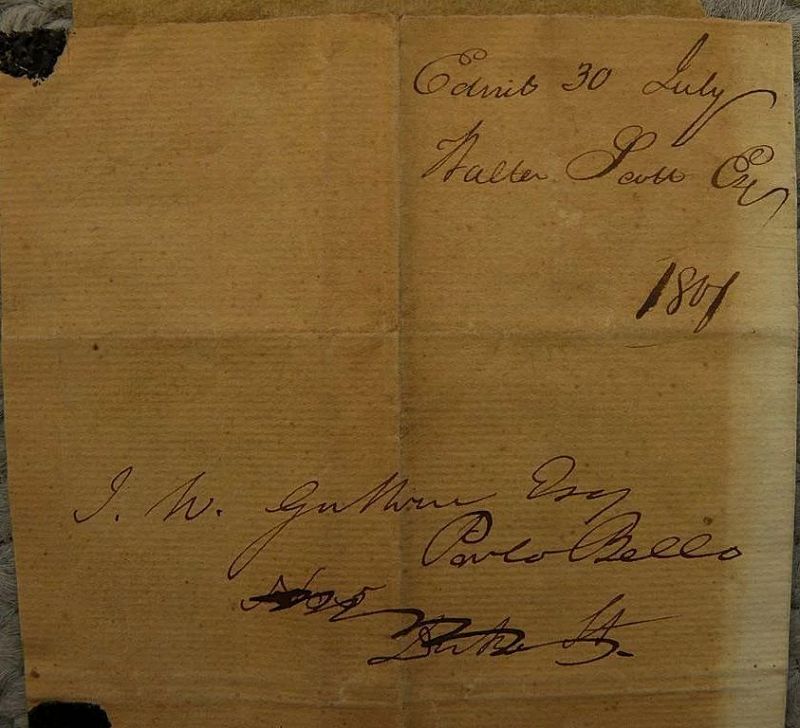 Edinb 30 July
Walter Scott Esq
1801
J. W. Guthrie Esq
Porto Bello
Duke St.